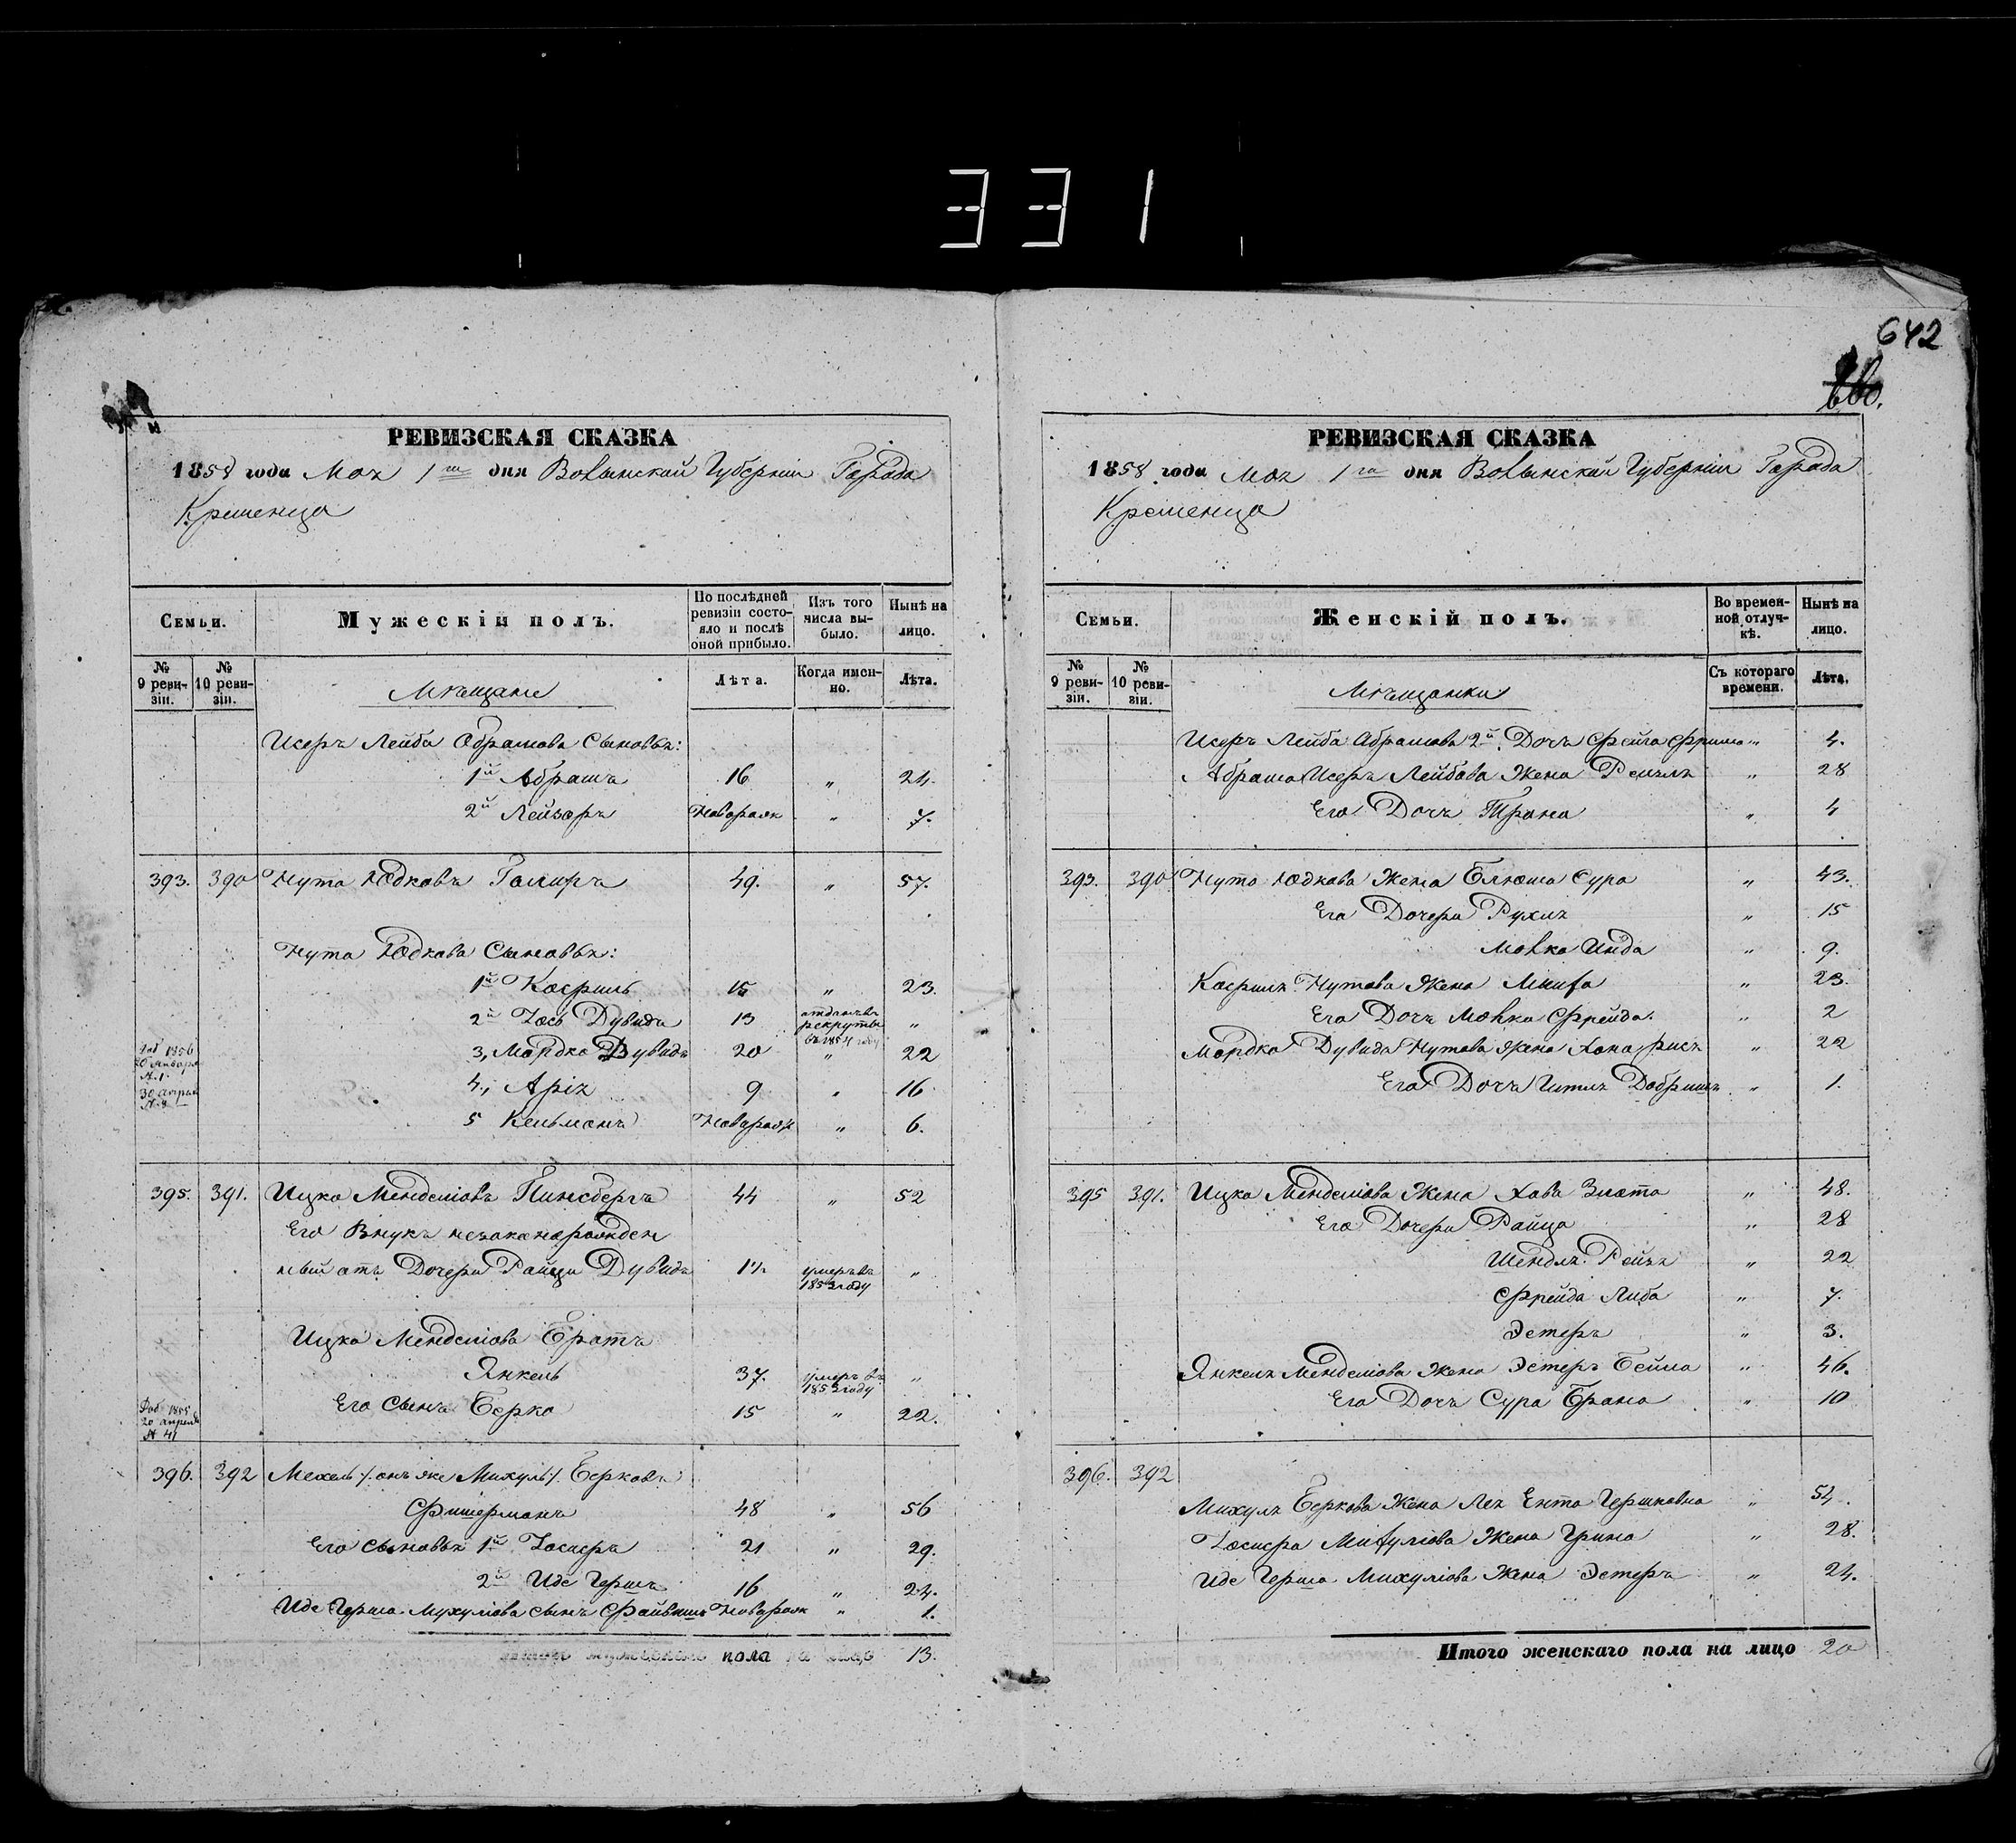 331
642
РЕВИЗСКАЯ СКАЗКА
1858 года Мая 1го дня Волынской Губерніи Города
Кременца
Семьи.
Мужескій полъ.
По послѣдней ревизіи состояло и послѣ оной прибыло.
Изъ того числа выбыло.
Нынѣ на лицо.
№ 9 ревизіи.
№ 10 ревизіи.
Мѣщане
Лѣта.
Когда именно.
Лѣта.
Исеръ Лейба Абрамова Сыновья:
1й Абрамъ 16 " 24.
2й ЛейзоръНоворож " 7.
393. 390 Нута Юдковъ 49. " 57.
Нута Юдкова Сыновья:
1й Касриль 15 " 23.
2й Іось Дувидъ 13 отданъ въ рекруты въ 1854 году "
Доб 1856
20 Января
№ 1
30 апрѣля
№ 8
3, Мордко Дувидъ 20 " 22
4, Аріа 9 " 16
5 КельманъНоворож " 6.
395. 391. Ицко Менделіовъ Гинсбергъ 44 " 52
Его Внукъ незаконорожден
ный отъ Дочери Райци Дувидъ 1½ умеръ въ 1853 году "
Ицка Менделіова Братъ
Янкель 37. умеръ въ 1853 году "
Доб 1855
20 апрѣля
№ 41
Его Сынъ Берко 15 " 22.
396. 392 Мехель /. онъ же Михуль ./ Берковъ
Фишерманъ 48 " 56
Его Сыновья 1й Іосисръ 21 " 29.
2й Иде Гершъ 16 " 24.
Иде Герша Михуліова сынъ Файвишъ Новорож " 1.
Итого мужескаго пола на лицо 13.
РЕВИЗСКАЯ СКАЗКА
1858 года Мая 1го дня Волынской Губерніи Города
Кременца
Семьи.
Женскій полъ.
Во временной отлучкѣ.
Нынѣ на лицо.
№ 9 ревизіи.
№ 10 ревизіи.
Мѣщанки
Съ котораго времени.
Лѣта.
Исеръ Лейба Абрамова 2й Дочь Фейга Фрима " 4.
Абрама Исеръ Лейбова Жена Рейзля " 28
Его Дочь Брана " 4
393. 390 Нута Юдкова Жена Блюма Сура " 43.
Его Дочери Рухля " 15
Малка Инда " 9.
Касриля Нутова Жена " 23.
Его Дочь Малка Фрейда. " 2
Мордко Дувида Нутова Жена Хана " 22
Его Дочь Добришъ " 1.
395 391. Ицка Менделіова Жена Хава Злота " 48.
Его Дочери Райца " 28
Шендля Рейзя " 22
Фрейда Либа " 7.
Эстеръ " 3.
Янкеля Менделіова Жена Эстеръ Бейла " 46.
Его Дочь Сура Брана " 10
396. 392
Михуля Беркова Жена Лея Ента Гершковна " 54.
Іосисра Михуліова Жена Грина " 28.
Иде Герша Михуліова Жена Эстеръ " 24.
Итого женскаго пола на лицо 20